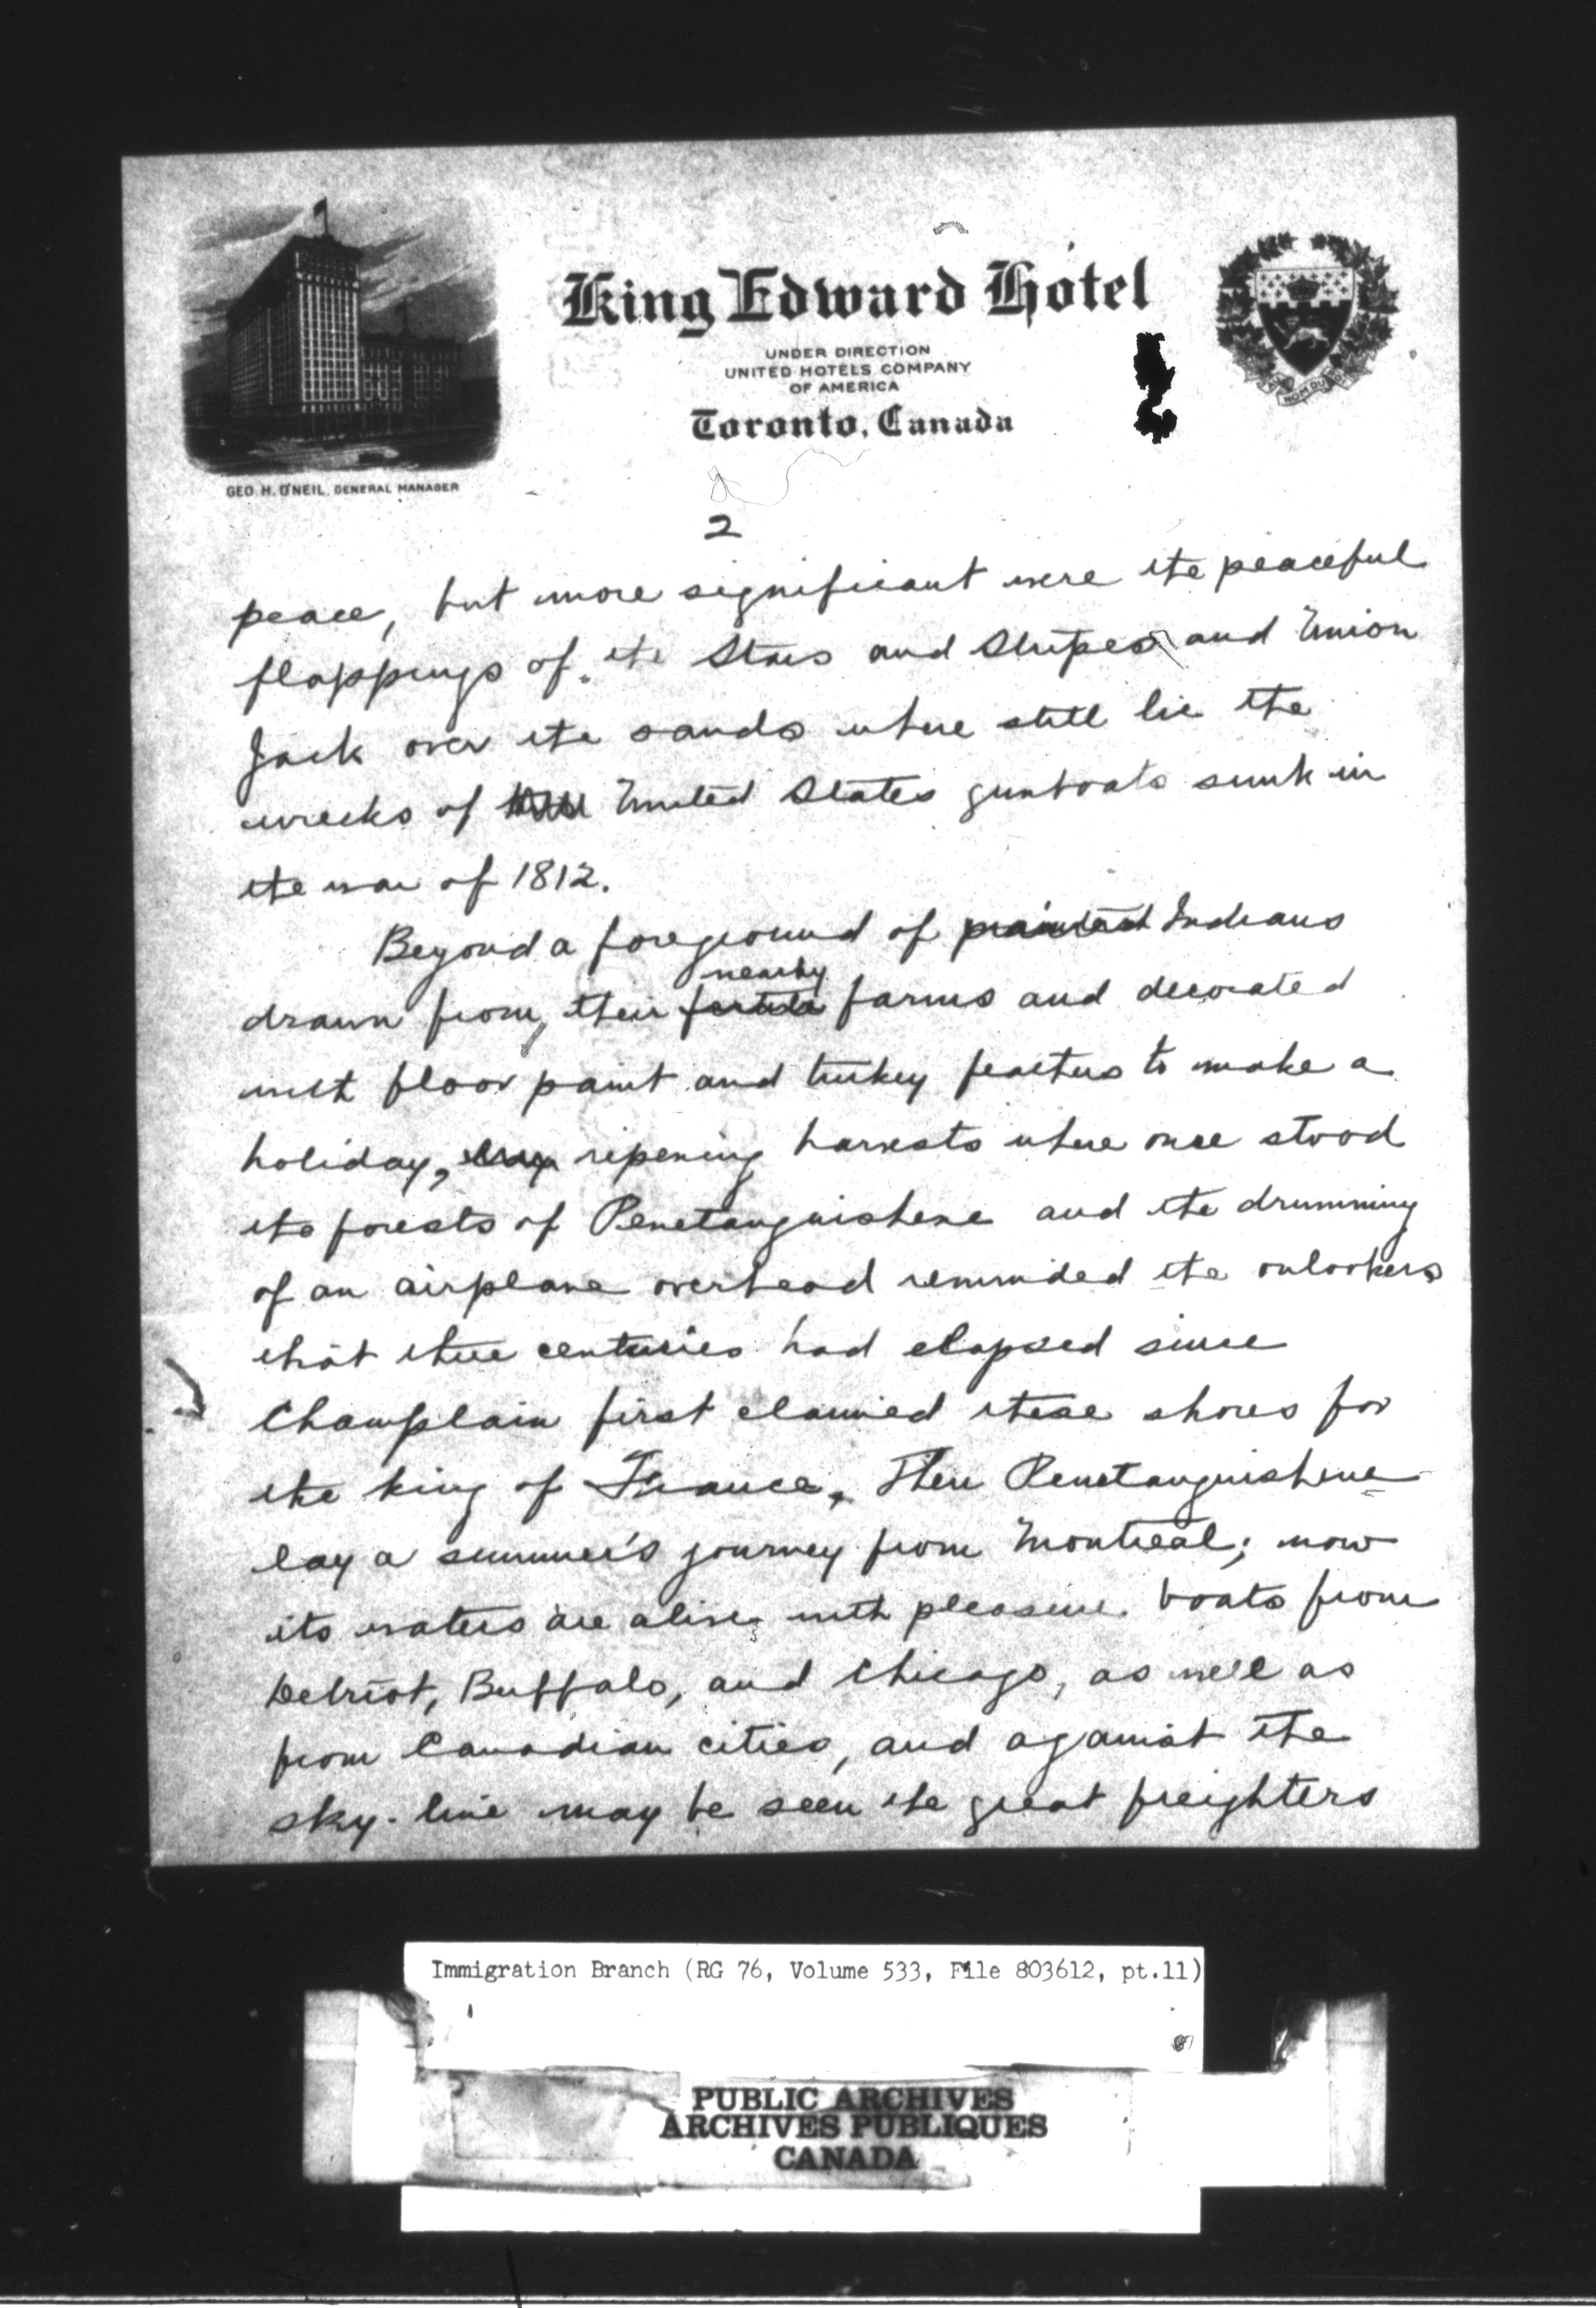 King Edward Hotel
UNDER DIRECTION
UNITED HOTELS COMPANY
OF AMERICA
Toronto, Canada
GEO. H. O'NEIL, GENERAL MANAGER
NOM DU ROI
2
peace, but more significant were the peaceful
flappings of the Stars and Stripes and Union
Jack over the sands where still lie the
wrecks of United States gunboats sunk in
the war of 1812.
Beyond a foreground of painted Indians
nearby
drawn from, their fertile farms and decorated
with floor paint and turkey feathers to make a
holiday, ripening harvests where once stood
the forests of Penetanguishene and the drumming
of an airplane overhead reminded the onlookers
that three centuries had elapsed since
Champlain first claimed these shores for
the king of France. Then Penetanguishene
lay a summer's journey from Montreal; now
its waters are alive with pleasure boats from
Detroit, Buffalo, and Chicago, as well as
from Canadian cities, and against the
sky-line may be seen the great freighters
Immigration Branch (RG 76, Volume 533, File 803612, pt.11)
PUBLIC ARCHIVES
ARCHIVES PUBLIQUES
CANADA